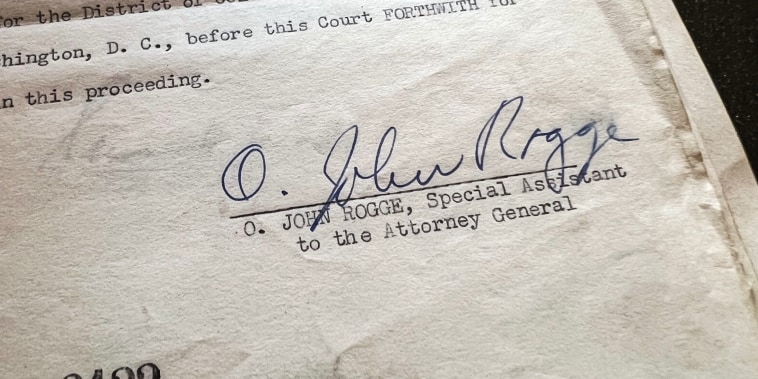 for the District of
hington, D. C., before this Court FORTHWITH for
n this proceeding.
O. John Rogge
O. JOHN ROGGE, Special Assistant
to the Attorney General